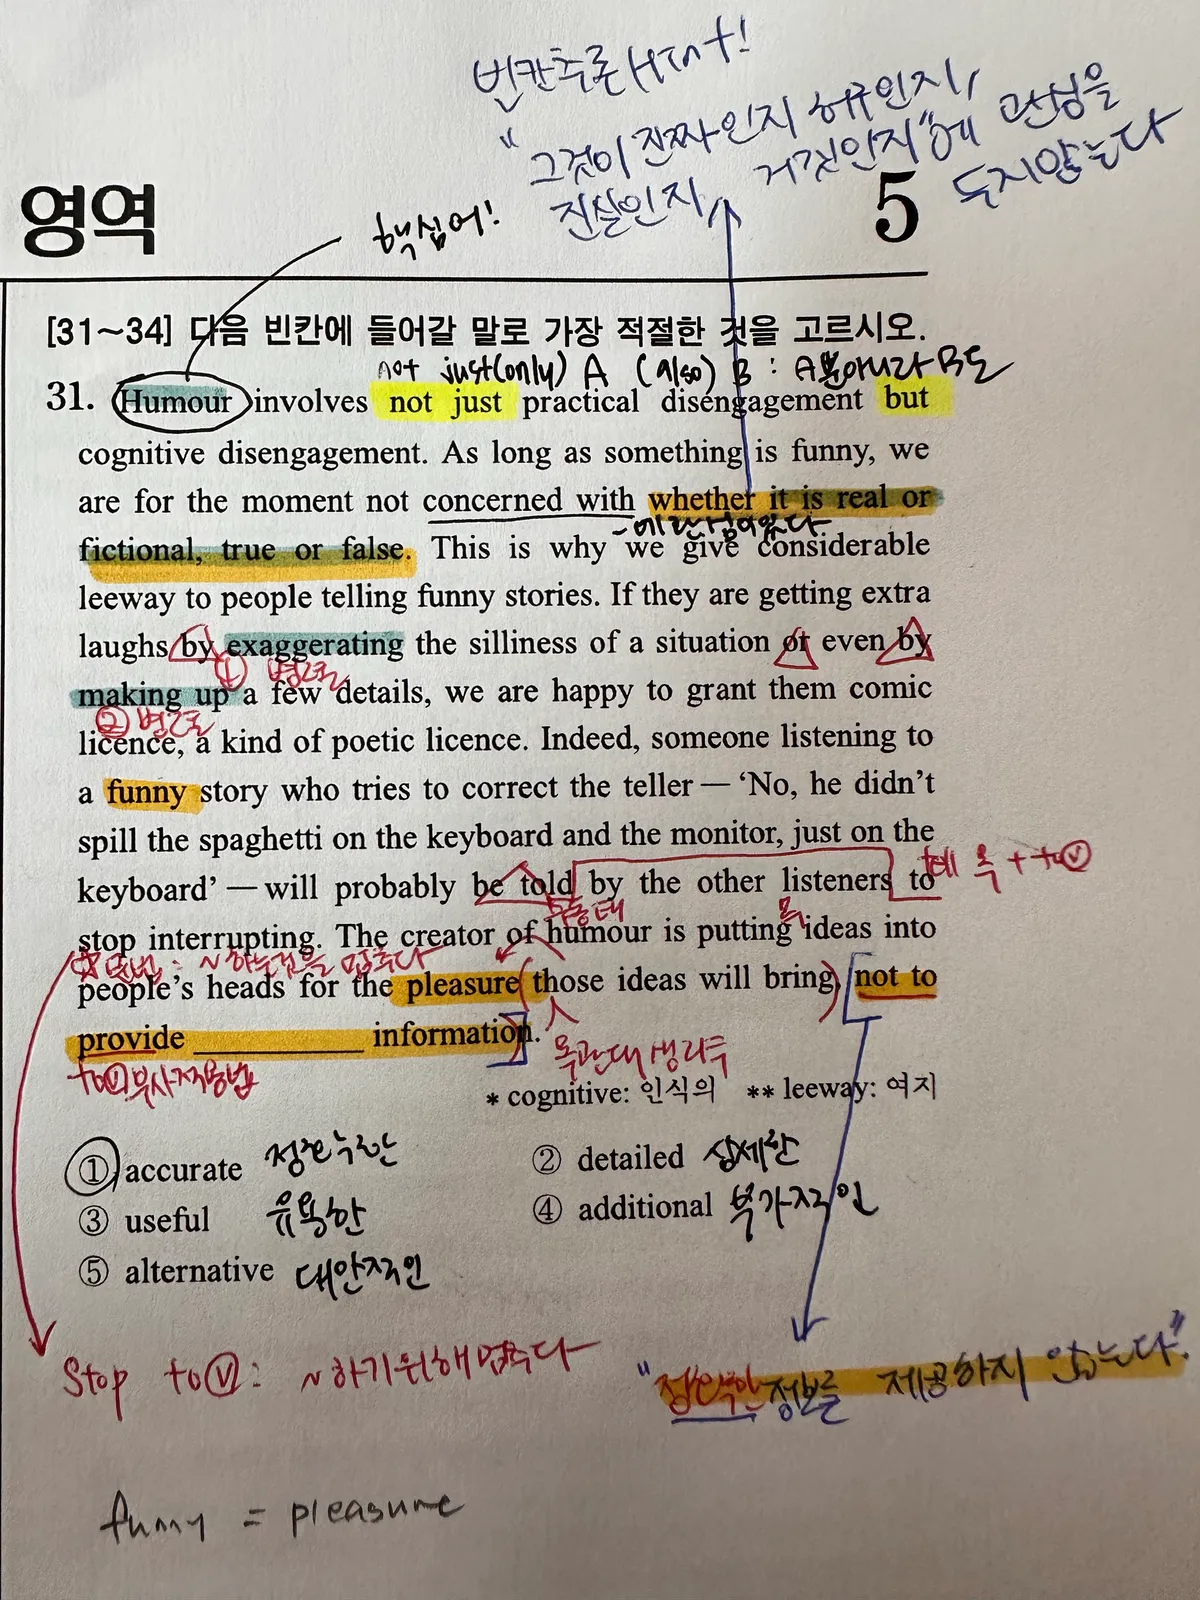 빈칸추론 Hint!
"그것이 진짜인지 허구인지,
진실인지, 거짓인지"에 관심을
두지않는다
핵심어!
영역
5
[31~34] 다음 빈칸에 들어갈 말로 가장 적절한 것을 고르시오.
not just(only) A (also) B : A뿐아니라 B도
31. Humour involves not just practical disengagement but
cognitive disengagement. As long as something is funny, we
are for the moment not concerned with whether it is real or
~에 관심이있다
fictional, true or false. This is why we give considerable
leeway to people telling funny stories. If they are getting extra
laughs by exaggerating the silliness of a situation or even by
① 병렬
making up a few details, we are happy to grant them comic
② 병렬
licence, a kind of poetic licence. Indeed, someone listening to
a funny story who tries to correct the teller — ‘No, he didn’t
spill the spaghetti on the keyboard and the monitor, just on the
keyboard’ — will probably be told by the other listeners to
tell 목 + to ⓥ
수동태
stop interrupting. The creator of humour is putting ideas into
목
: ~하는것을 멈추다
people’s heads for the pleasure those ideas will bring, not to
provide ____________ information.
to ⓥ 부사적용법
목관대 생략
* cognitive: 인식의 ** leeway: 여지
① accurate 정확한
② detailed 상세한
③ useful 유용한
④ additional 부가적인
⑤ alternative 대안적인
Stop to ⓥ : ~하기위해 멈추다
"정확한 정보를 제공하지 않는다."
funny = pleasure